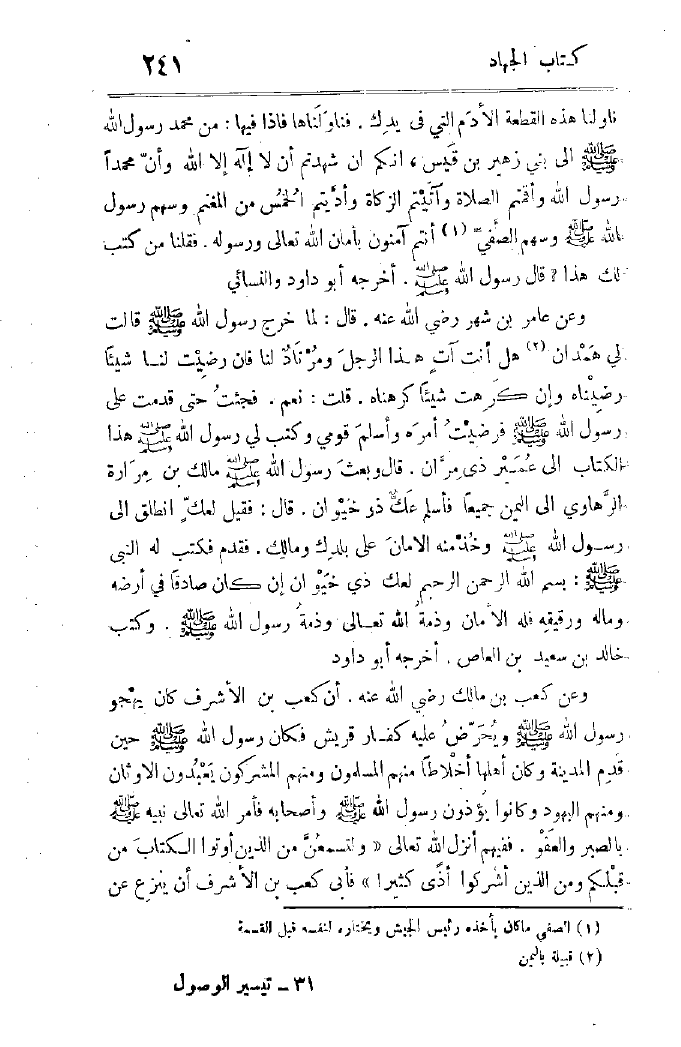 كتاب الجهاد ٢٤١
ناولنا هذه القطعة الأدم التي في يدك . فناولَناها فاذا فيها : من محمد رسول الله
ﷺ الى بني زهير بن قَيس ، انكم ان شهدتم أن لا إله إلا الله وأنّ محمداً
رسول الله وأقمتم الصلاة وآتَيْتم الزكاة وأدّيتم الخمُس من المغنم وسهم رسول
الله ﷺ وسهم الصَّفيّ (١) أنتم آمنون بأمان الله تعالى ورسوله . فقلنا من كتب
لك هذا ? قال رسول الله ﷺ . أخرجه أبو داود والنسائي
وعن عامر بن شهر رضي الله عنه . قال : لما خرج رسول الله ﷺ قالت
لي هَمْدان (٢) هل أنت آتٍ هذا الرجلَ ومُرْتادٌ لنا فان رضيْتَ لنا شيئاً
رضِيْناه وإن كرهت شيئاً كرهناه . قلت : نعم . فجئتُ حتى قدمت على
رسول الله ﷺ فرضيْتُ أمرَه وأسلمَ قومي وكتب لي رسول الله ﷺ هذا
الكتاب الى عُمَيْر ذى مرَّان . قال وبعثَ رسول الله ﷺ مالك بن مِرارة
الرَّهاوي الى اليمن جميعاً فأسلم عَكّ ذو خَيْوان . قال : فقيل لعكّ انطلق الى
رسول الله ﷺ وخُذْ منه الامانَ على بلدِك ومالِك . فقدم فكتب له النبي
ﷺ : بسم الله الرحمن الرحيم لعك ذي خَيْوان إن كان صادقاً في أرضه
وماله ورقيقِه فله الأمان وذمةُ الله تعالى وذمةُ رسول الله ﷺ . وكتب
خالد بن سعيد بن العاص . أخرجه أبو داود
وعن كعب بن مالك رضي الله عنه . أن كعب بن الأشرف كان يهْجو
رسول الله ﷺ ويُحَرّضُ عليه كفار قريش فكان رسول الله ﷺ حين
قدِم المدينة وكان أهلها أخْلاطاً منهم المسلمون ومنهم المشركون يَعْبُدون الاوثان
ومنهم اليهود وكانوا يؤذون رسول الله ﷺ وأصحابه فأمر الله تعالى نبيه ﷺ
بالصبر والعَفْو . ففيهم أنزل الله تعالى « ولتسمعُنَّ من الذين أوتوا الكتابَ من
قبْلكم ومن الذين أشركوا أذًى كثيرا » فأبى كعب بن الأشرف أن ينزع عن
(١) الصفي ما كان يأخذه رئيس الجيش ويختاره لنفسه قبل القسمة
(٢) قبيلة باليمن
٣١ ـ تيسير الوصول